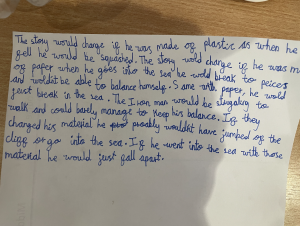 The story would change if he was made of plastic as when he
fell he would be squashed. The story wold change if he was m
of paper when he goes into the sea he wold break to peices
and woldn't be able to balance himself. Same with paper, he wold
just break in the sea. The Iron man would be struggling to
walk and could barely manage to keep his balance. If they
changed his material he proably wouldn't have jumped of the
cliff or go into the sea. If he went into the sea with those
material he would just fall apart.